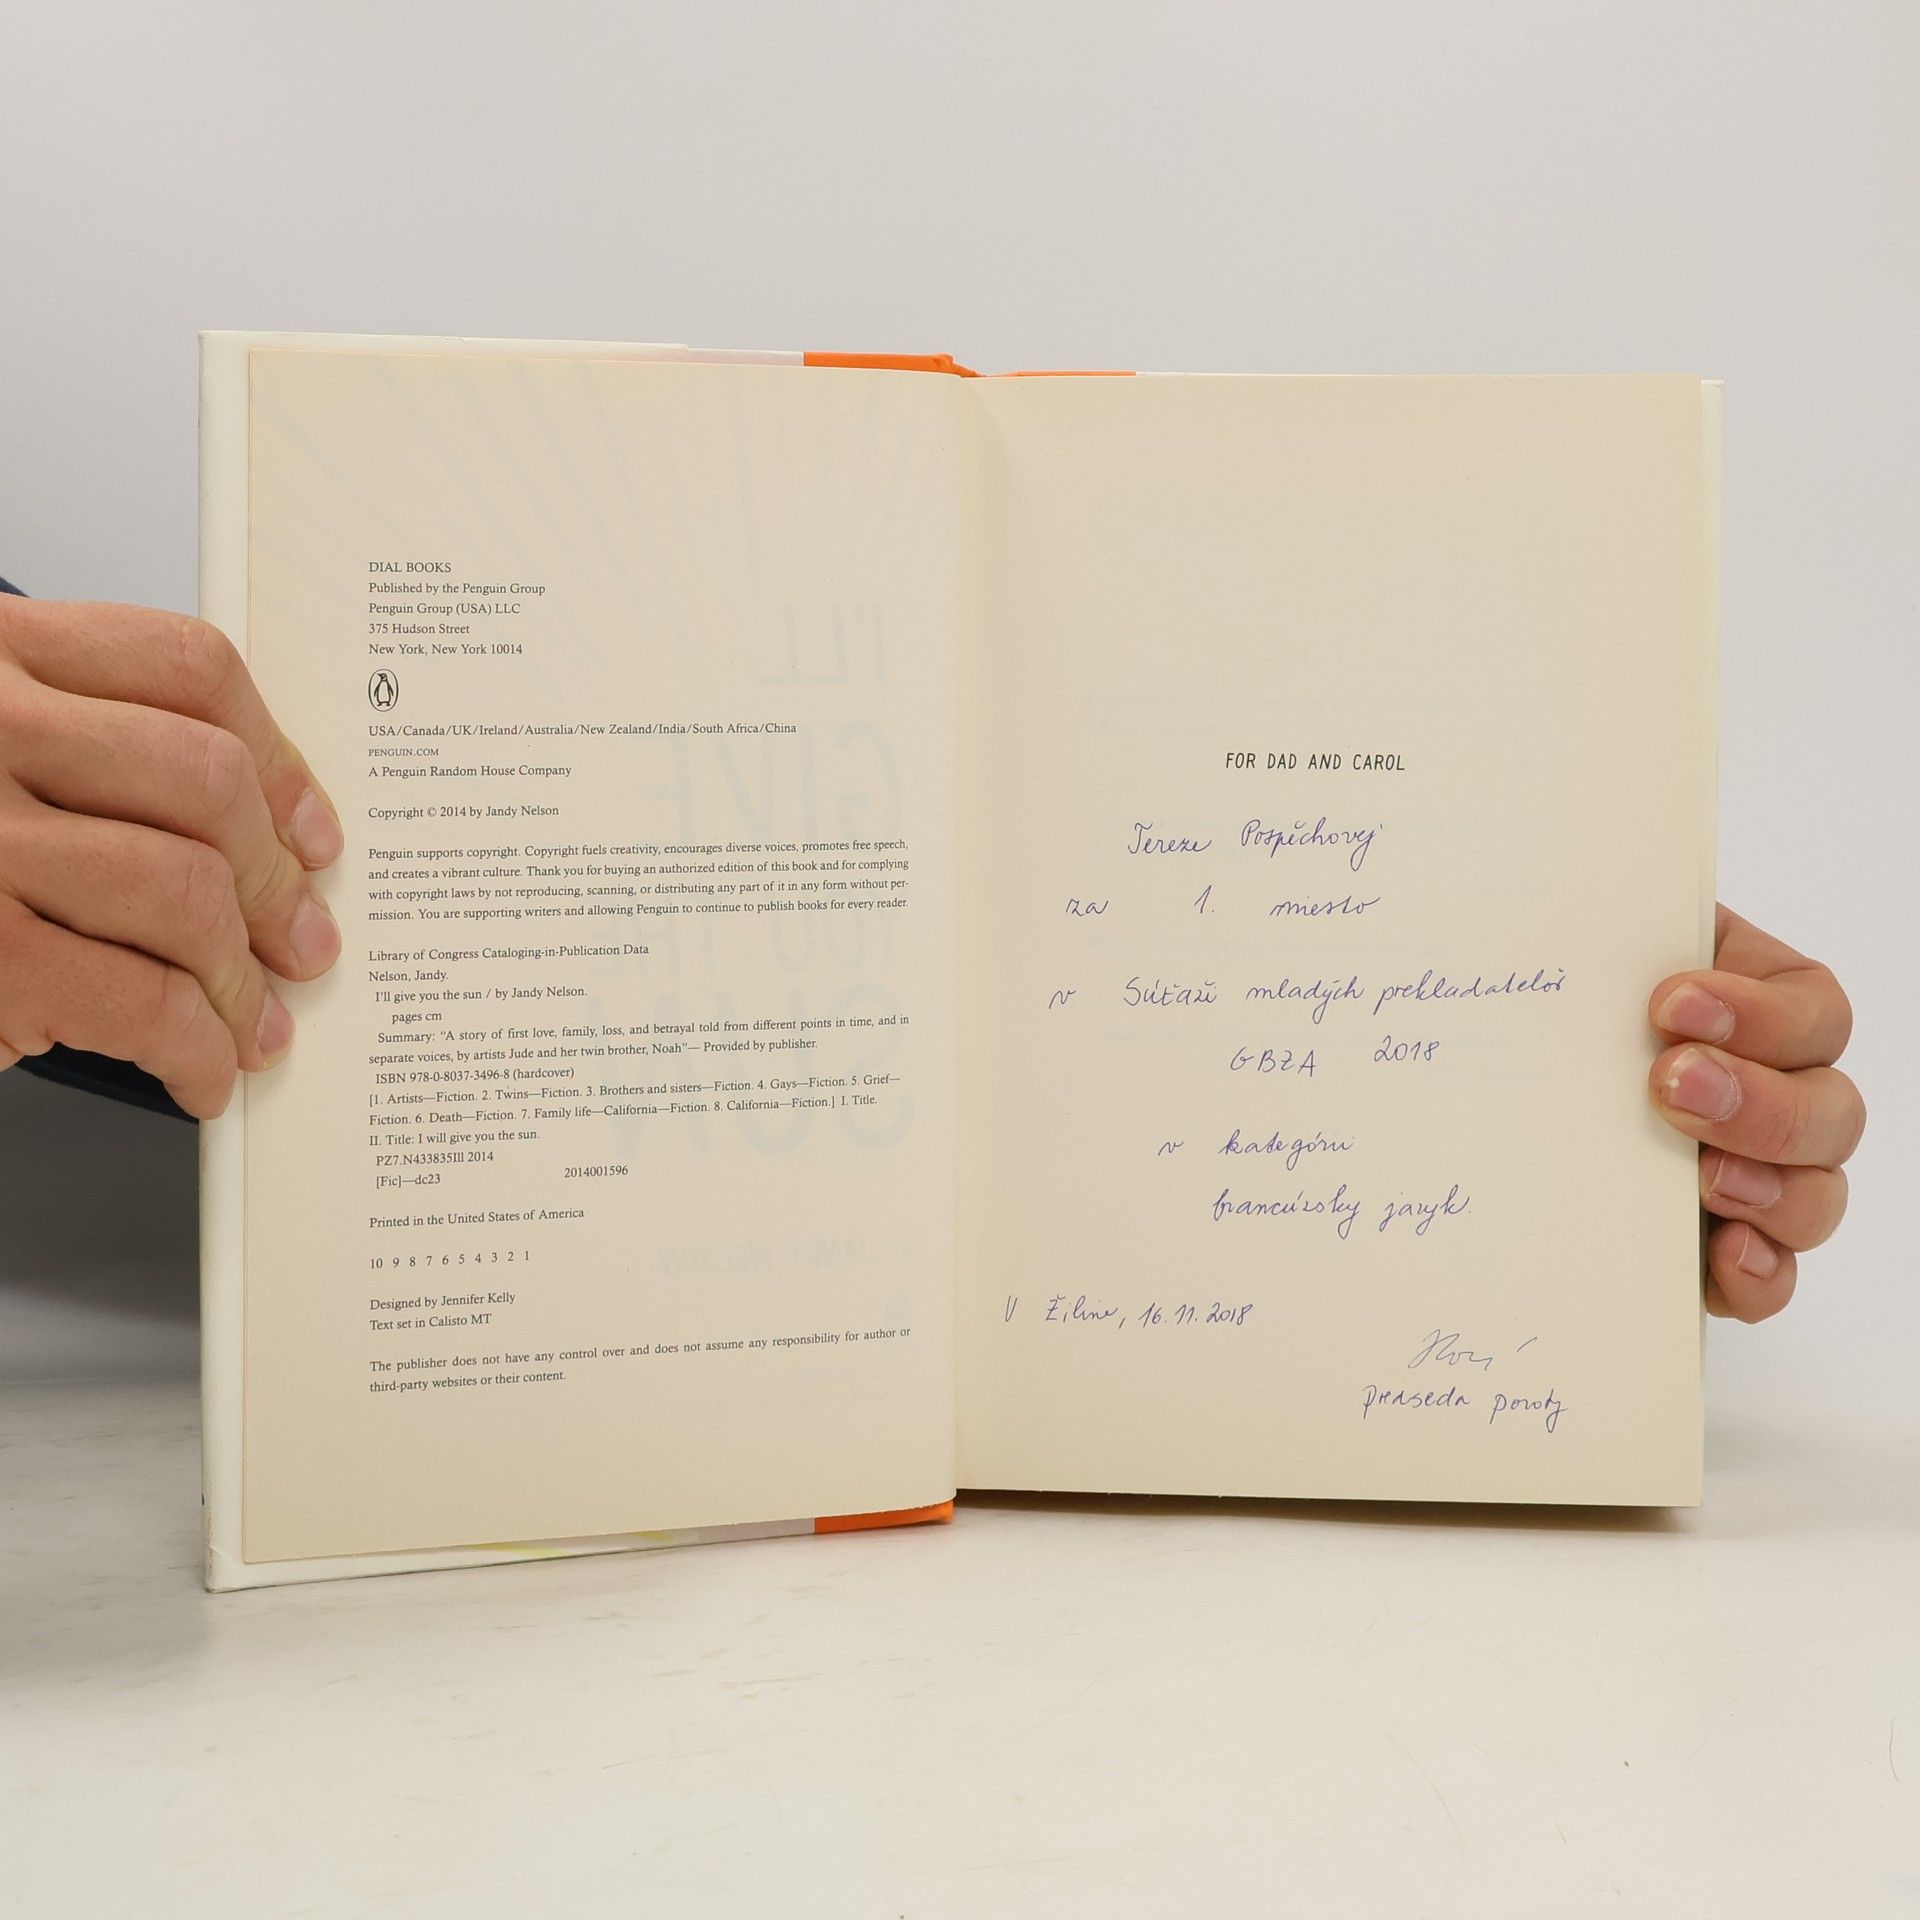 DIAL BOOKS
Published by the Penguin Group
Penguin Group (USA) LLC
375 Hudson Street
New York, New York 10014
USA/Canada/UK/Ireland/Australia/New Zealand/India/South Africa/China
PENGUIN.COM
A Penguin Random House Company
Copyright © 2014 by Jandy Nelson
Penguin supports copyright. Copyright fuels creativity, encourages diverse voices, promotes free speech,
and creates a vibrant culture. Thank you for buying an authorized edition of this book and for complying
with copyright laws by not reproducing, scanning, or distributing any part of it in any form without per-
mission. You are supporting writers and allowing Penguin to continue to publish books for every reader.
Library of Congress Cataloging-in-Publication Data
Nelson, Jandy.
I'll give you the sun / by Jandy Nelson.
pages cm
Summary: “A story of first love, family, loss, and betrayal told from different points in time, and in
separate voices, by artists Jude and her twin brother, Noah”— Provided by publisher.
ISBN 978-0-8037-3496-8 (hardcover)
[1. Artists—Fiction. 2. Twins—Fiction. 3. Brothers and sisters—Fiction. 4. Gays—Fiction. 5. Grief—
Fiction. 6. Death—Fiction. 7. Family life—California—Fiction. 8. California—Fiction.] I. Title.
II. Title: I will give you the sun.
PZ7.N433835Ill 2014
[Fic]—dc23 2014001596
Printed in the United States of America
10 9 8 7 6 5 4 3 2 1
Designed by Jennifer Kelly
Text set in Calisto MT
The publisher does not have any control over and does not assume any responsibility for author or
third-party websites or their content.
FOR DAD AND CAROL
Tereze Pospěchovej
za 1. miesto
v Súťaži mladých prekladateľov
GBZA 2018
v kategórii
francúzsky jazyk.
V Žiline, 16.11.2018
predseda poroty